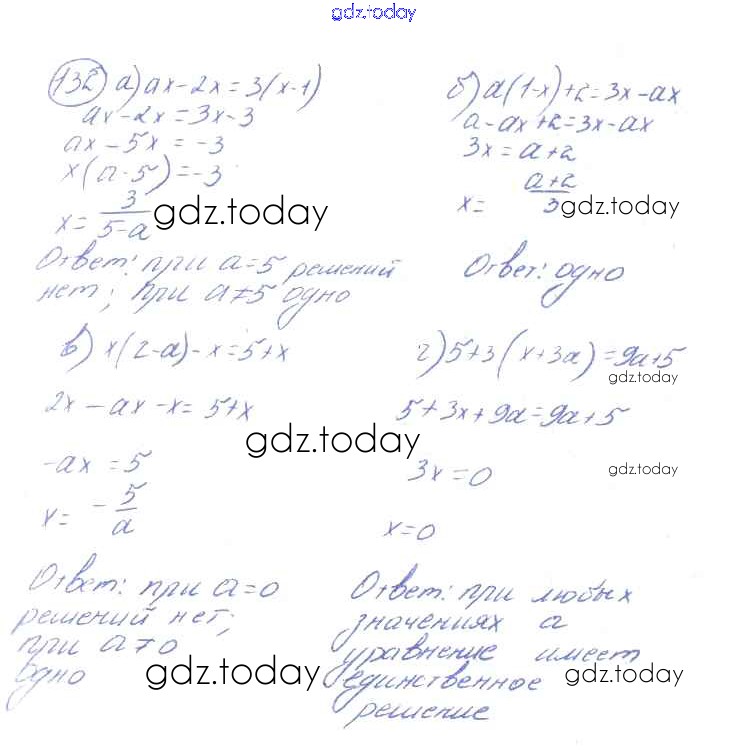 gdz.today
132 а) ax - 2x = 3(x-1)
ax - 2x = 3x - 3
ax - 5x = -3
x(a-5) = -3
x = 3/(5-a)
gdz.today
Ответ: при a=5 решений
нет; при a≠5 одно
б) a(1-x)+2=3x-ax
a-ax+2=3x-ax
3x = a+2
x = (a+2)/3
gdz.today
Ответ: одно
в) x(2-a)-x=5+x
2x - ax - x = 5+x
gdz.today
-ax = 5
x = -5/a
Ответ: при a=0
решений нет;
при a≠0
одно
gdz.today
г) 5+3(x+3a)=9a+5
gdz.today
5+3x+9a=9a+5
3x=0
gdz.today
x=0
Ответ: при любых
значениях a
уравнение имеет
единственное
gdz.today
решение